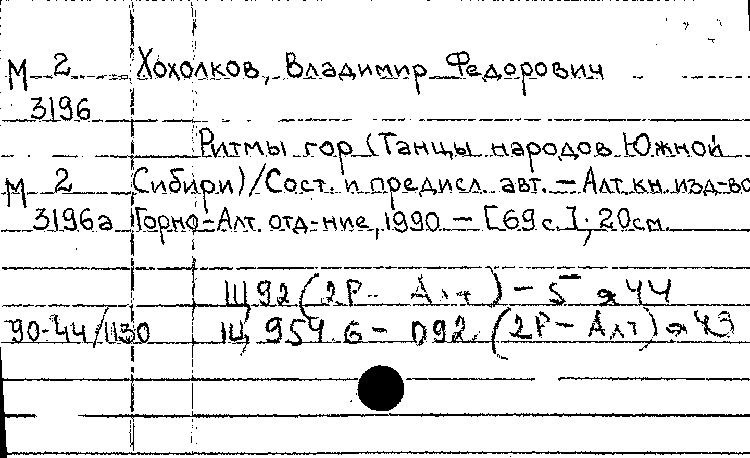 М 2 Хохолков, Владимир Федорович
3196
Ритмы гор (Танцы народов Южной
М 2 Сибири)/Сост. и предисл. авт. – Алт. кн. изд-во
3196а Горно-Алт. отд-ние, 1990 – [69 с.]; 20см.
Щ92(2Р- Алт) – 5 я 44
90-44/1130 Щ954.6 – 092.(2Р – Алт) я 43